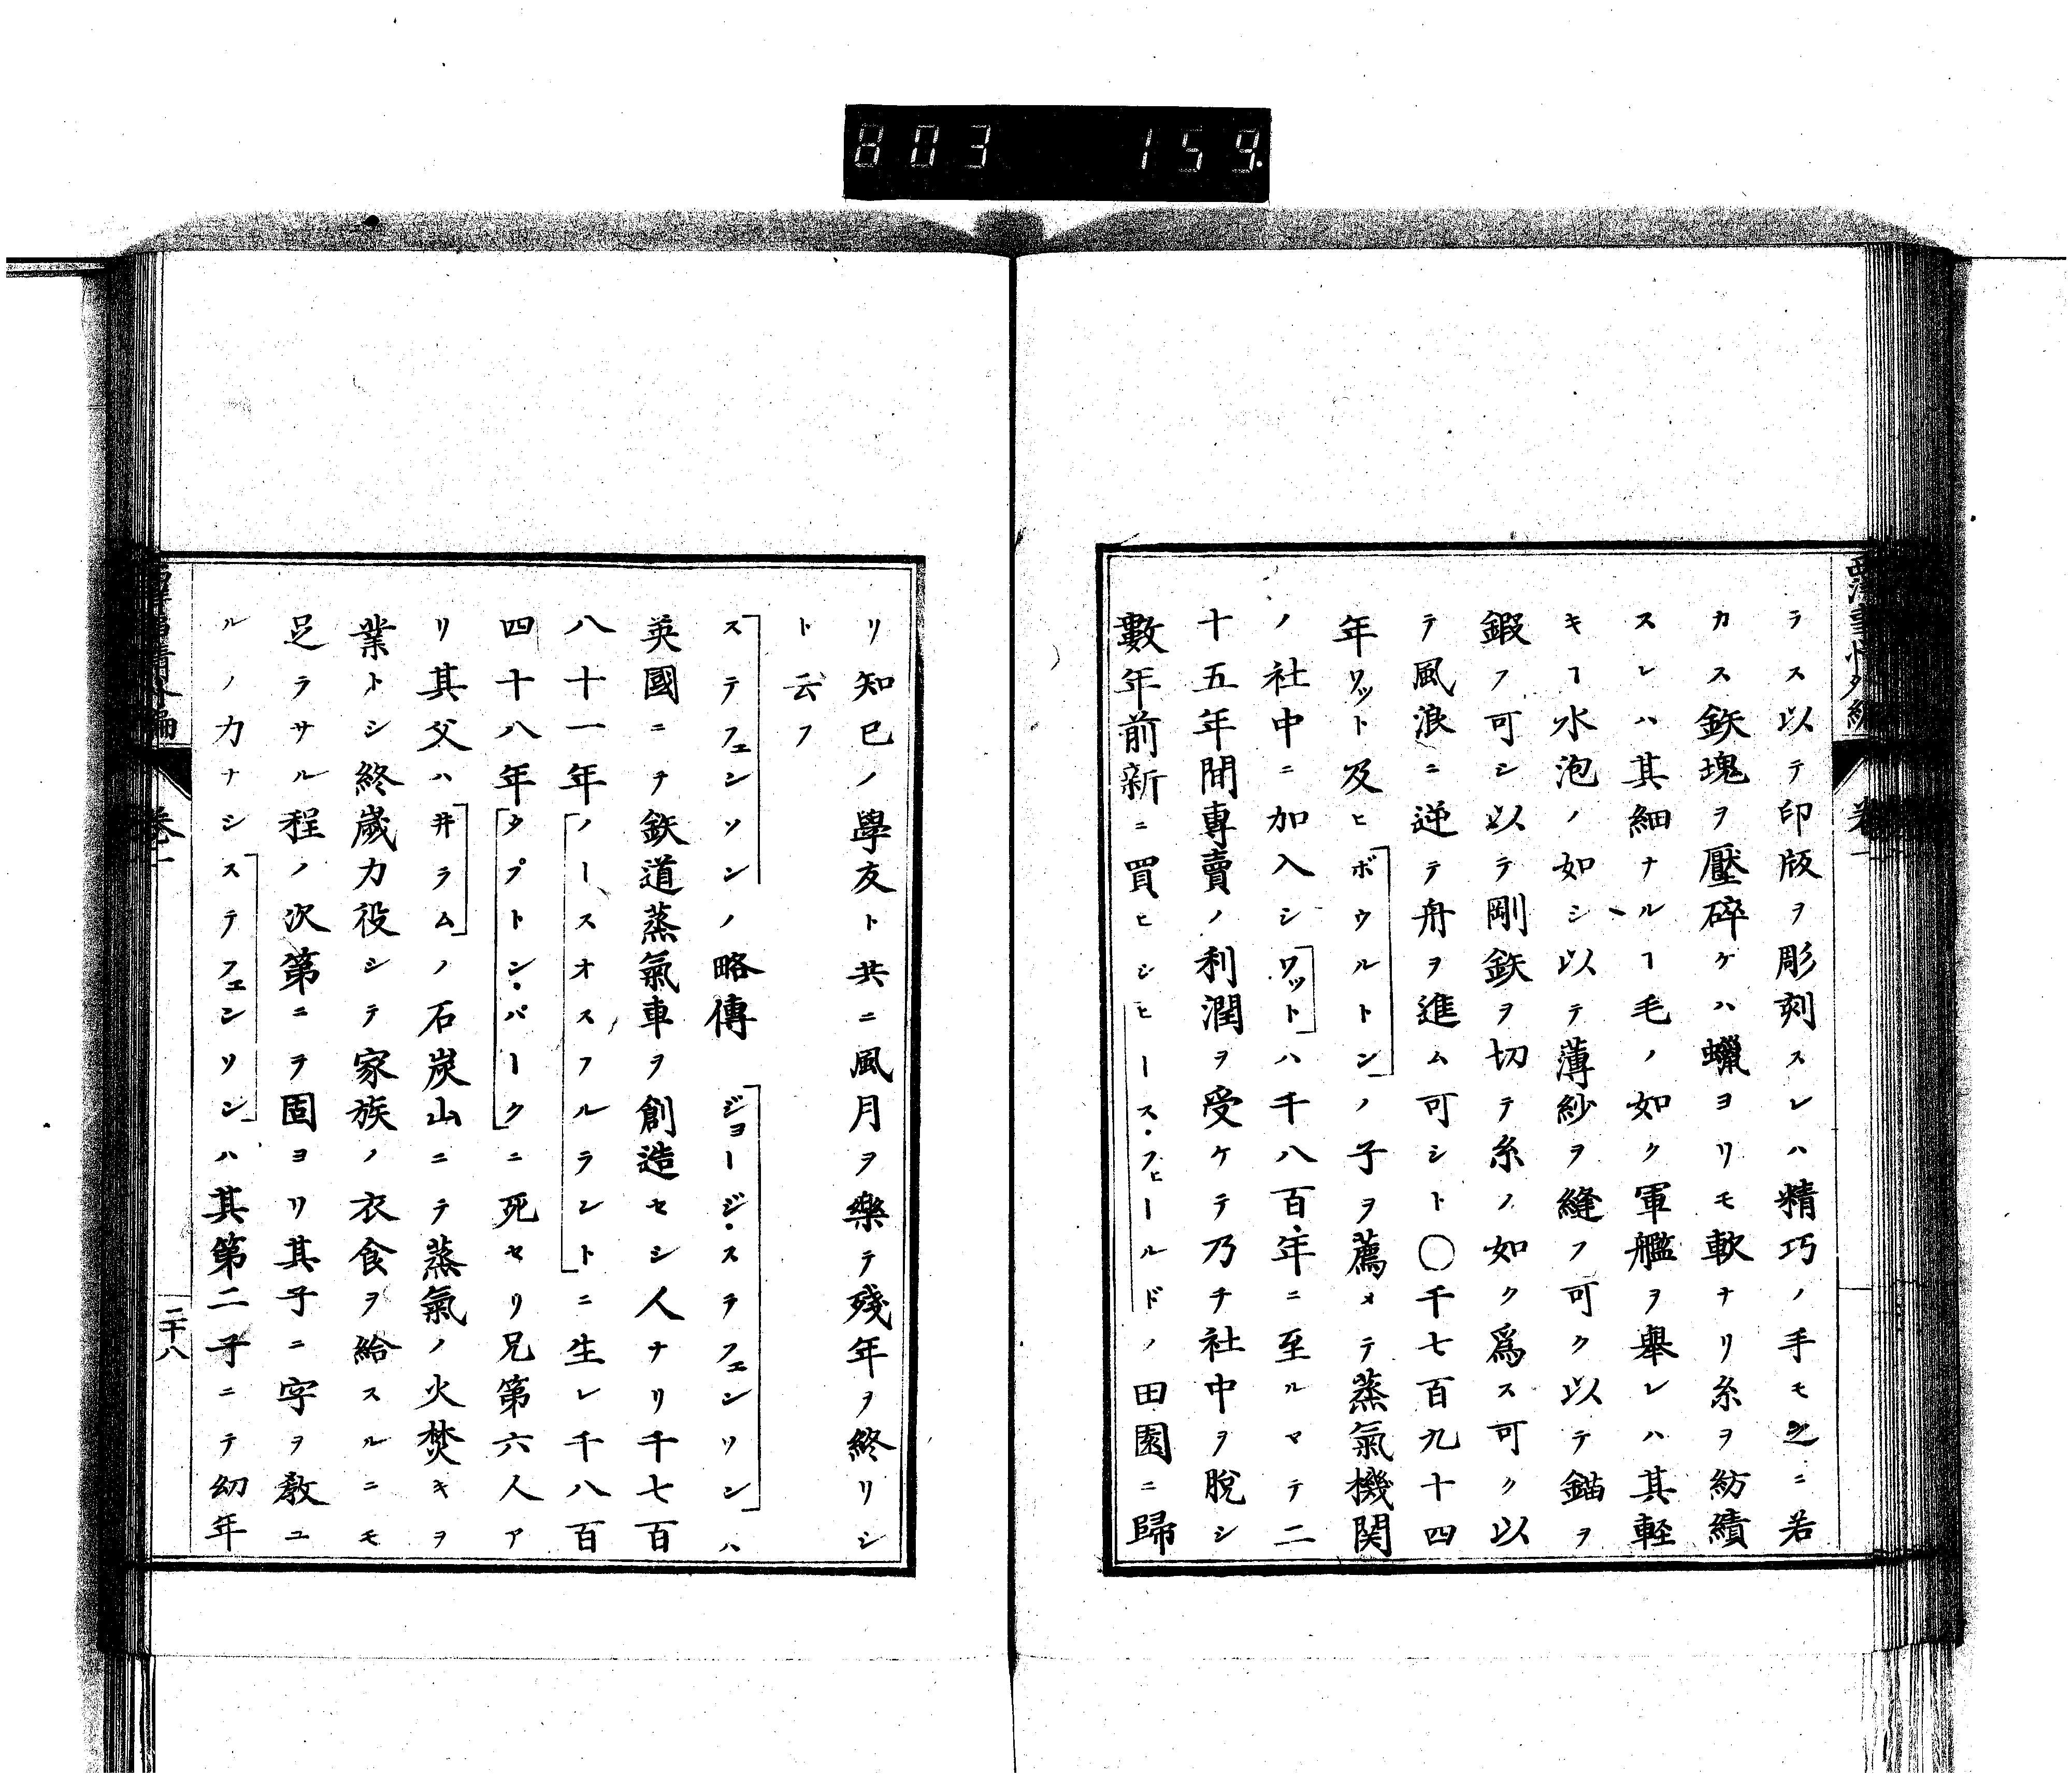 803 159.
西洋事情外編
卷一
ラス以テ印版ヲ彫刻スレハ精巧ノ手モ之ニ若
カス鉄塊ヲ壓碎ケハ蠟ヨリモ軟ナリ糸ヲ紡績
スレハ其細ナルヿ毛ノ如ク軍艦ヲ舉レハ其軽
キヿ水泡ノ如シ以テ薄紗ヲ縫フ可ク以テ錨ヲ
鍜フ可シ以テ剛鉄ヲ切テ糸ノ如ク爲ス可ク以
テ風浪ニ逆テ舟ヲ進ム可シト〇千七百九十四
年ワット及ヒボウルトンノ子ヲ薦メテ蒸氣機関
ノ社中ニ加入シワットハ千八百年ニ至ルマテ二
十五年間專賣ノ利潤ヲ受ケテ乃チ社中ヲ脫シ
數年前新ニ買ヒシヒースフヒールドノ田園ニ歸
リ知已ノ學友ト共ニ風月ヲ樂テ殘年ヲ終リシ
ト云フ
ステフェンソンノ略傳 ジョージ・ステフェンソンハ
英國ニテ鉄道蒸氣車ヲ創造セシ人ナリ千七百
八十一年ノースオスフルラントニ生レ千八百
四十八年タプトン・パークニ死セリ兄第六人ア
リ其父ハ井ラムノ石炭山ニテ蒸氣ノ火焚キヲ
業トシ終歲力役シテ家族ノ衣食ヲ給スルニモ
足ラサル程ノ次第ニテ固ヨリ其子ニ字ヲ敎ユ
ルノ力ナシステフェンソンハ其第二子ニテ幼年
卷一
二十八